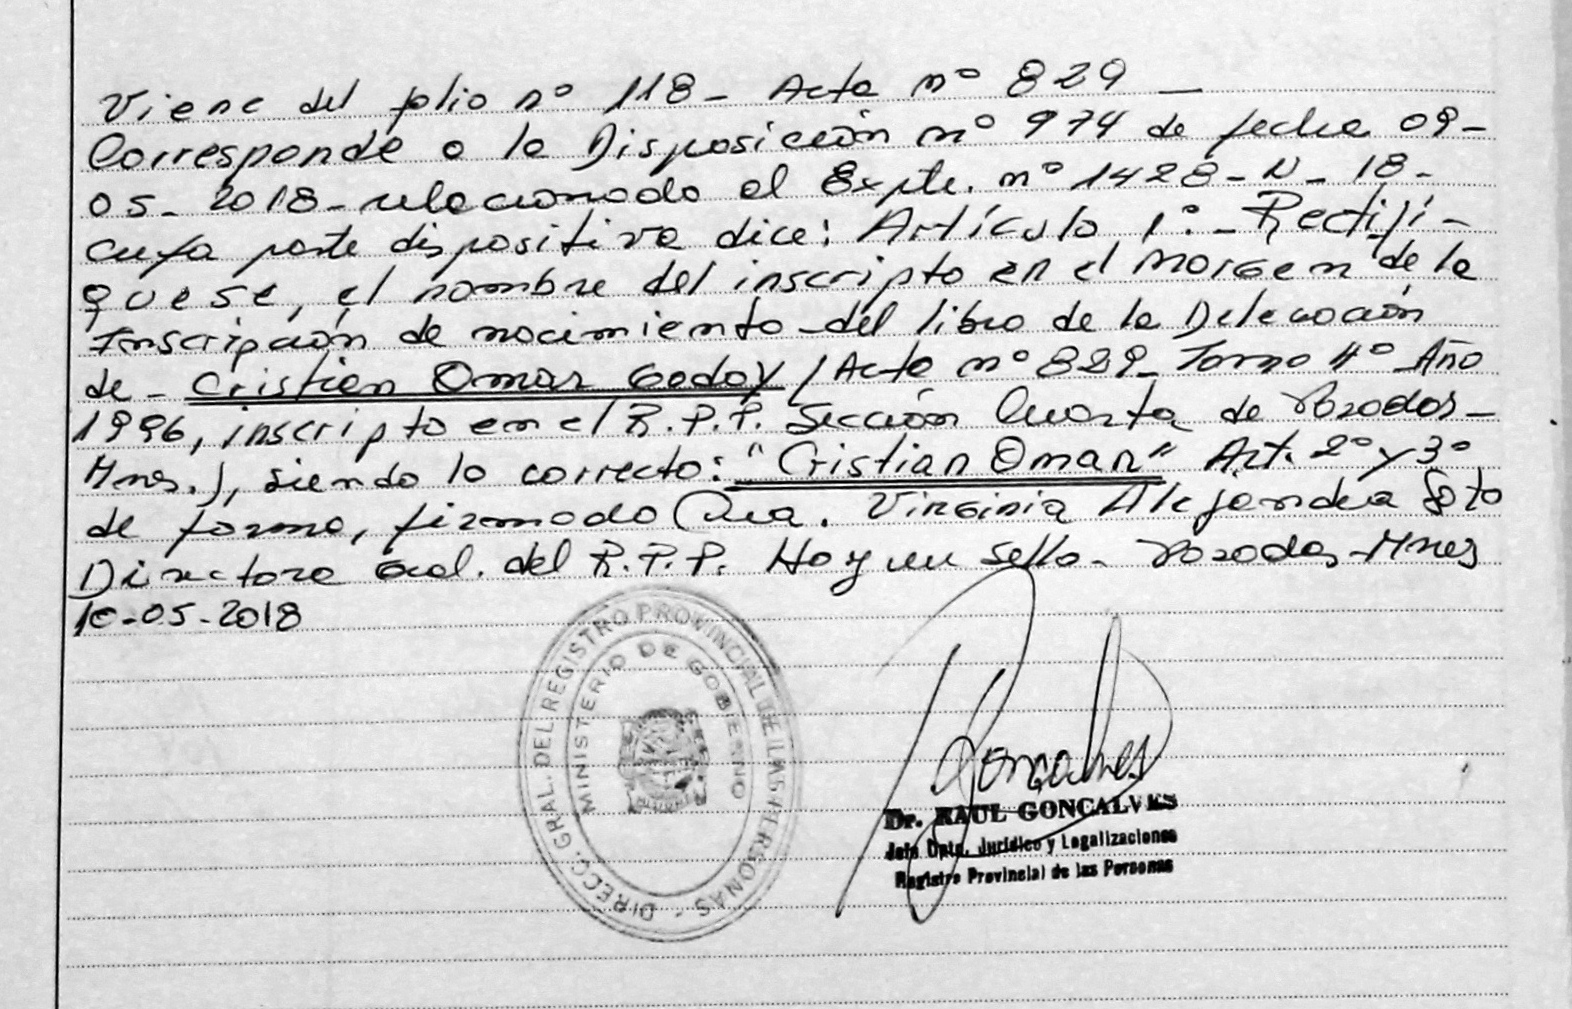 Viene del folio nº 118 - Acta nº 829 -
Corresponde a la Disposición nº 974 de fecha 09-
05-2018 - relacionado al Expte. nº 1428-N-18-
cuya parte dispositiva dice: Artículo 1º - Rectifi-
quese, el nombre del inscripto en el margen de la
Inscripción de nacimiento - del libro de la Delegación
de - Cristien Omar Godoy (Acta nº 829 - Tomo 4º Año
1996, inscripto en el R.P.P. Sección Cuarta de Posadas -
Mnes.), siendo lo correcto: "Cristian Omar" Art. 2º y 3º
de forma, firmado Dra. Virginia Alejandra Soto
Directora Gral. del R.P.P. Hay un sello - Posadas - Mnes
10-05-2018
DIRECC. GRAL. DEL REGISTRO PROVINCIAL DE LAS PERSONAS -
MINISTERIO DE GOBIERNO
Goncalves
Dr. RAUL GONCALVES
Jefe Dpto. Jurídico y Legalizaciones
Registro Provincial de las Personas